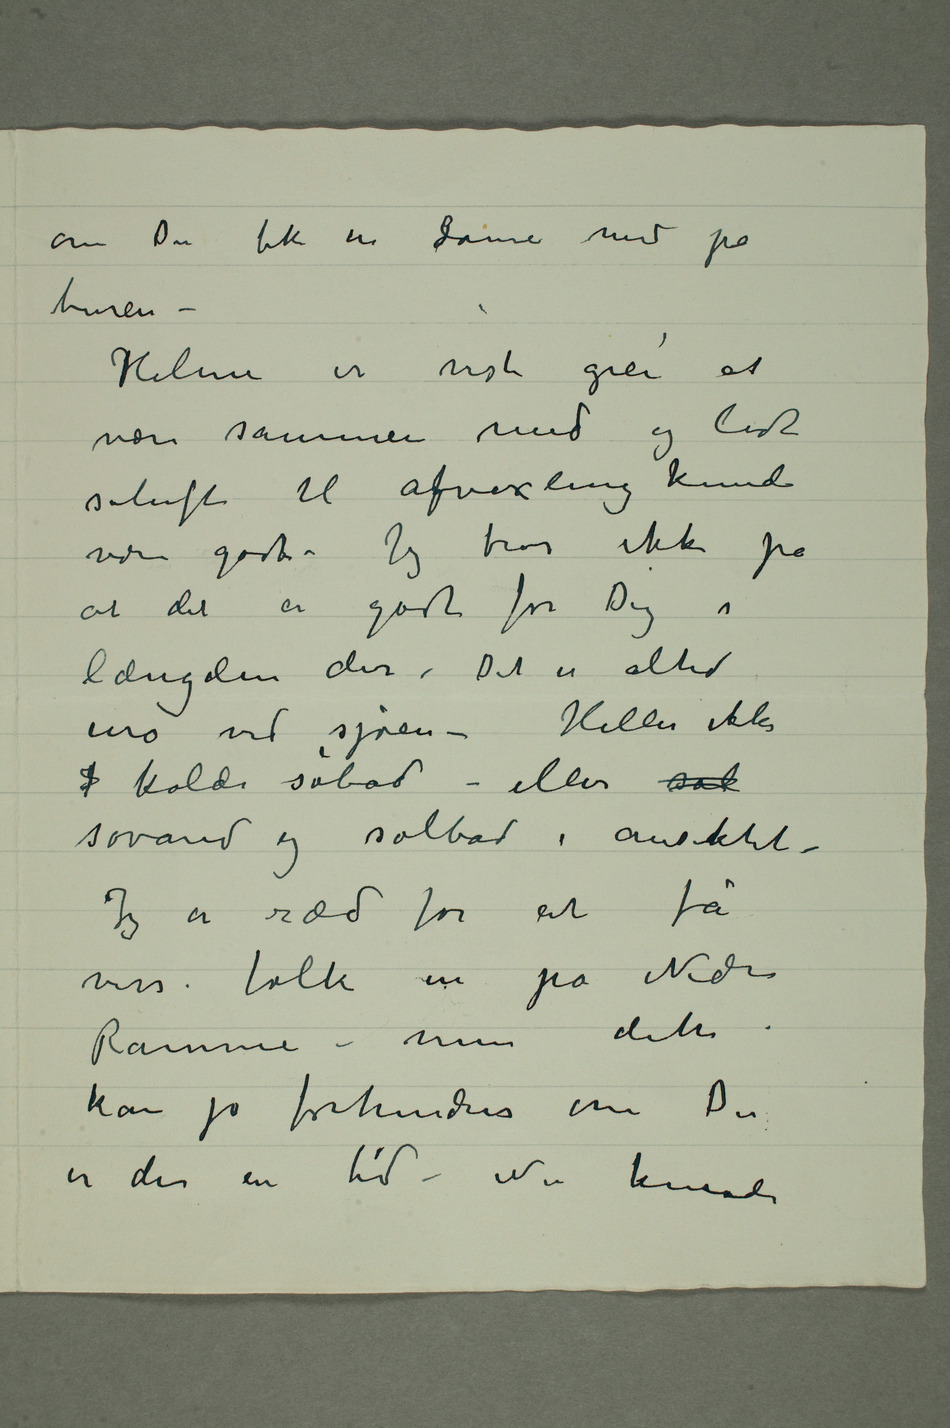 om Du fik en dame med på
turen –
Helme er visst grei at
være sammen med og lidt
selvst til afvexling kunde
være godt – Jeg tror ikke på
at det er godt for Dig i
længden der. Det er altid
uro ved sjøen – Heller ikke
I kolde søbad – eller sol
søvand og solbad i ansiktet –
Jeg er ræd for at få
viss. folk in på Nedre
Ramme – men dette
kan jo forhindres om Du
er der en tid – Nu kunde